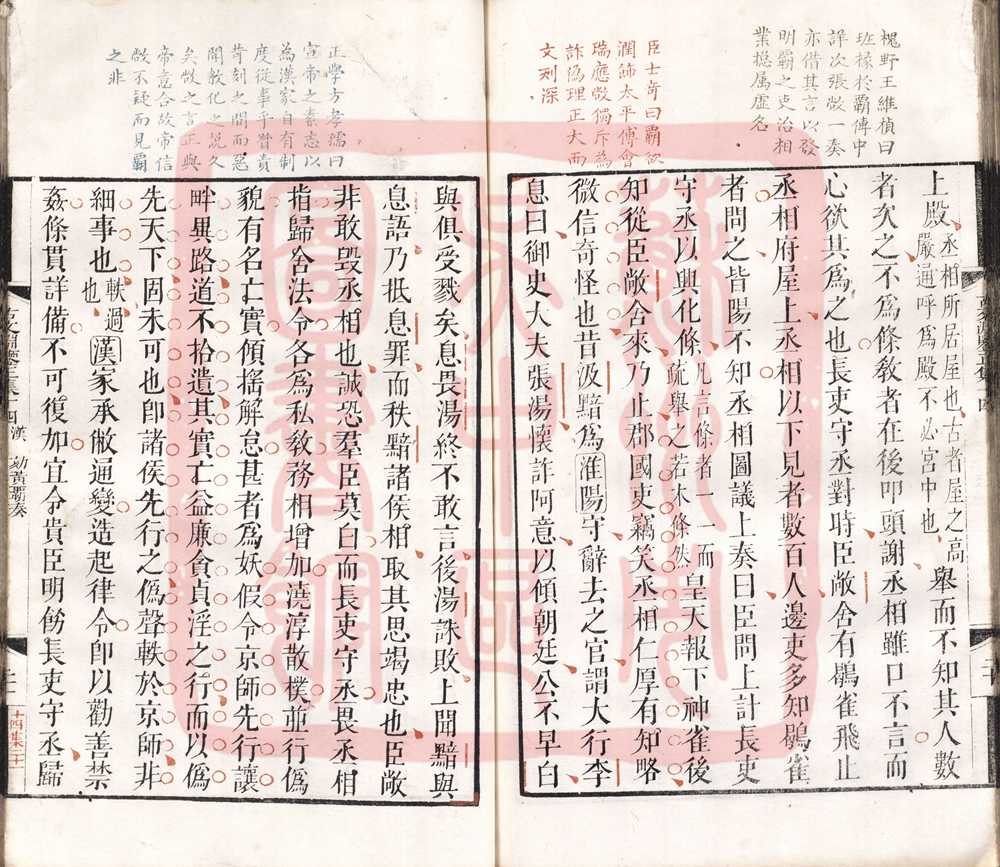 槐野王維楨曰
班椽於霸傳中
詳次張敞一奏
亦借其言以發
明霸之吏治相
業摠属虚名
臣士奇曰霸欲
潤飾太平傅會
瑞應敞獨斥為
詐偽理正大而
文刻深
上殿丞相所居屋也古者屋之高嚴通呼爲殿不必宮中也舉而不知其人數
者次之不爲條教者在後叩頭謝丞相雖口不言而
心欲其爲之也長吏守丞對時臣敞舍有鶡雀飛止
丞相府屋上丞相以下見者數百人邊吏多知鶡雀
者問之皆陽不知丞相圖議上奏曰臣問上計長吏
守丞以興化條凡言條者一一而疏舉之若木條然皇天報下神雀後
知從臣敞舍來乃止郡國吏竊笑丞相仁厚有知略
微信奇怪也昔汲黯爲淮陽守辭去之官謂大行李
息曰御史大夫張湯懷詐阿意以傾朝廷公不早白
正學方孝孺曰
宣帝之素志以
為漢家自有制
度從事乎督責
苛刻之間而惡
聞教化之説久
矣敞之言正與
帝意合故帝信
敞不疑而見霸
之非
與俱受戮矣息畏湯終不敢言後湯誅敗上聞黯與
息語乃抵息罪而秩黯諸侯相取其思竭忠也臣敞
非敢毀丞相也誠恐羣臣莫白而長吏守丞畏丞相
指歸舍法令各爲私教務相增加澆淳散樸並行僞
貌有名亡實傾搖解怠甚者爲妖假令京師先行讓
畔異路道不拾遺其實亡益廉貪貞淫之行而以僞
先天下固未可也卽諸侯先行之僞聲軼於京師非
細事也軼過也漢家承敝通變造起律令卽以勸善禁
姦條貫詳備不可復加宜令貴臣明飭長吏守丞歸
十四 漢 劾黃霸奏